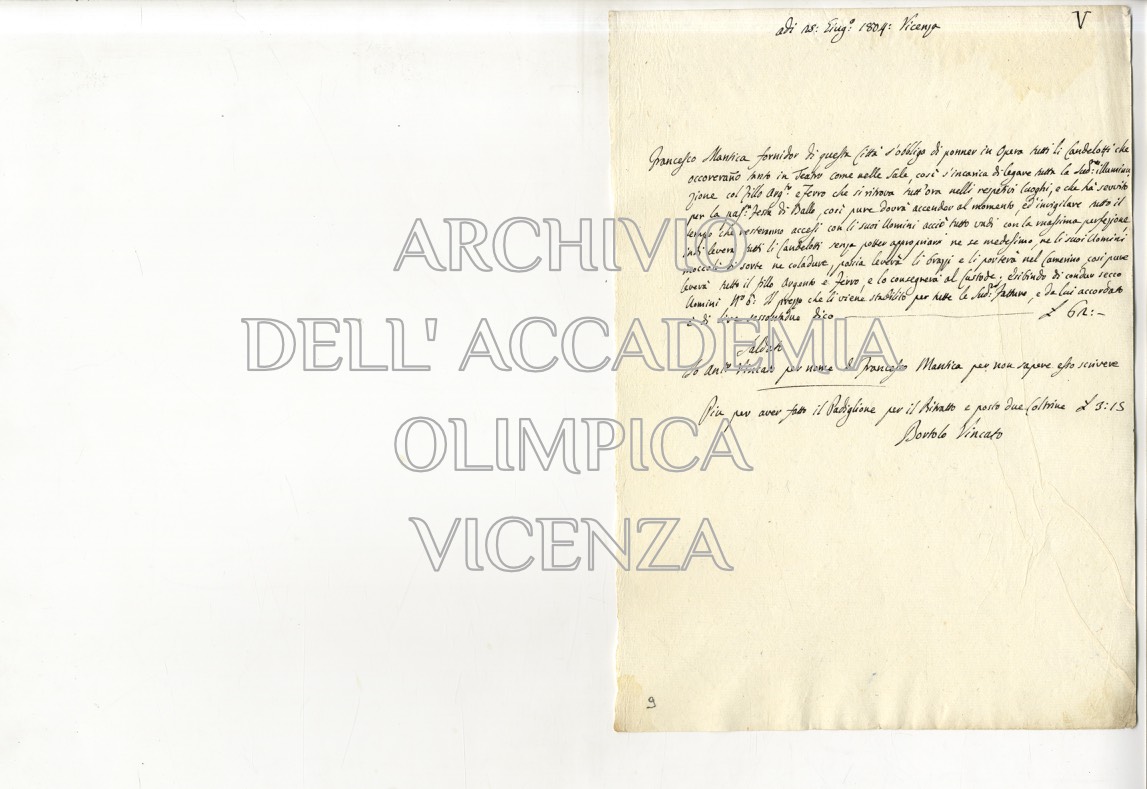 V
adi 18: Giug.º 1804: Vicenza
Francesco Mantica fornidor di questa Città s'obbliga di ponner in Opera tutti li Candelotti che
occoreranno tanto in Teatro come nelle Sale, così s'incarica di legare tutta la Sud.ª illumina
zione col fillo Arg.º e Ferro che si ritrova tutt'ora nelli respetivi luoghi, e che hà servito
per la pas.ª Festa di Ballo, così pure dovrà accender al momento, ed invigilare tutto il
tempo che resteranno accesi con li suoi Uomini acciò tutto vadi con la massima perfezione
indi leverà tutti li Candelotti senza poter appropriarsi ne se medesimo, ne li suoi Uomini
moccoli di sorte ne coladure, poscia leverà li brazzi e li porterà nel Camerino così pure
leverà tutto il fillo Argento e Ferro, e lo consegnerà al Custode; esibindo di condur secco
Uomini Nº 6: Il prezzo che li viene stabilito per tutte le Sud.e Fatture, e da lui accordato
è di lire sessantadue dico £ 62:-
Saldato
Io Ant.º Vincato per nome di Francesco Mantica per non sapere esso scrivere
Piu per aver fatto il Padiglione per il Ritratto e posto due Coltrine £ 3:15
Bortolo Vincato
9
ARCHIVIO
DELL' ACCADEMIA
OLIMPICA
VICENZA